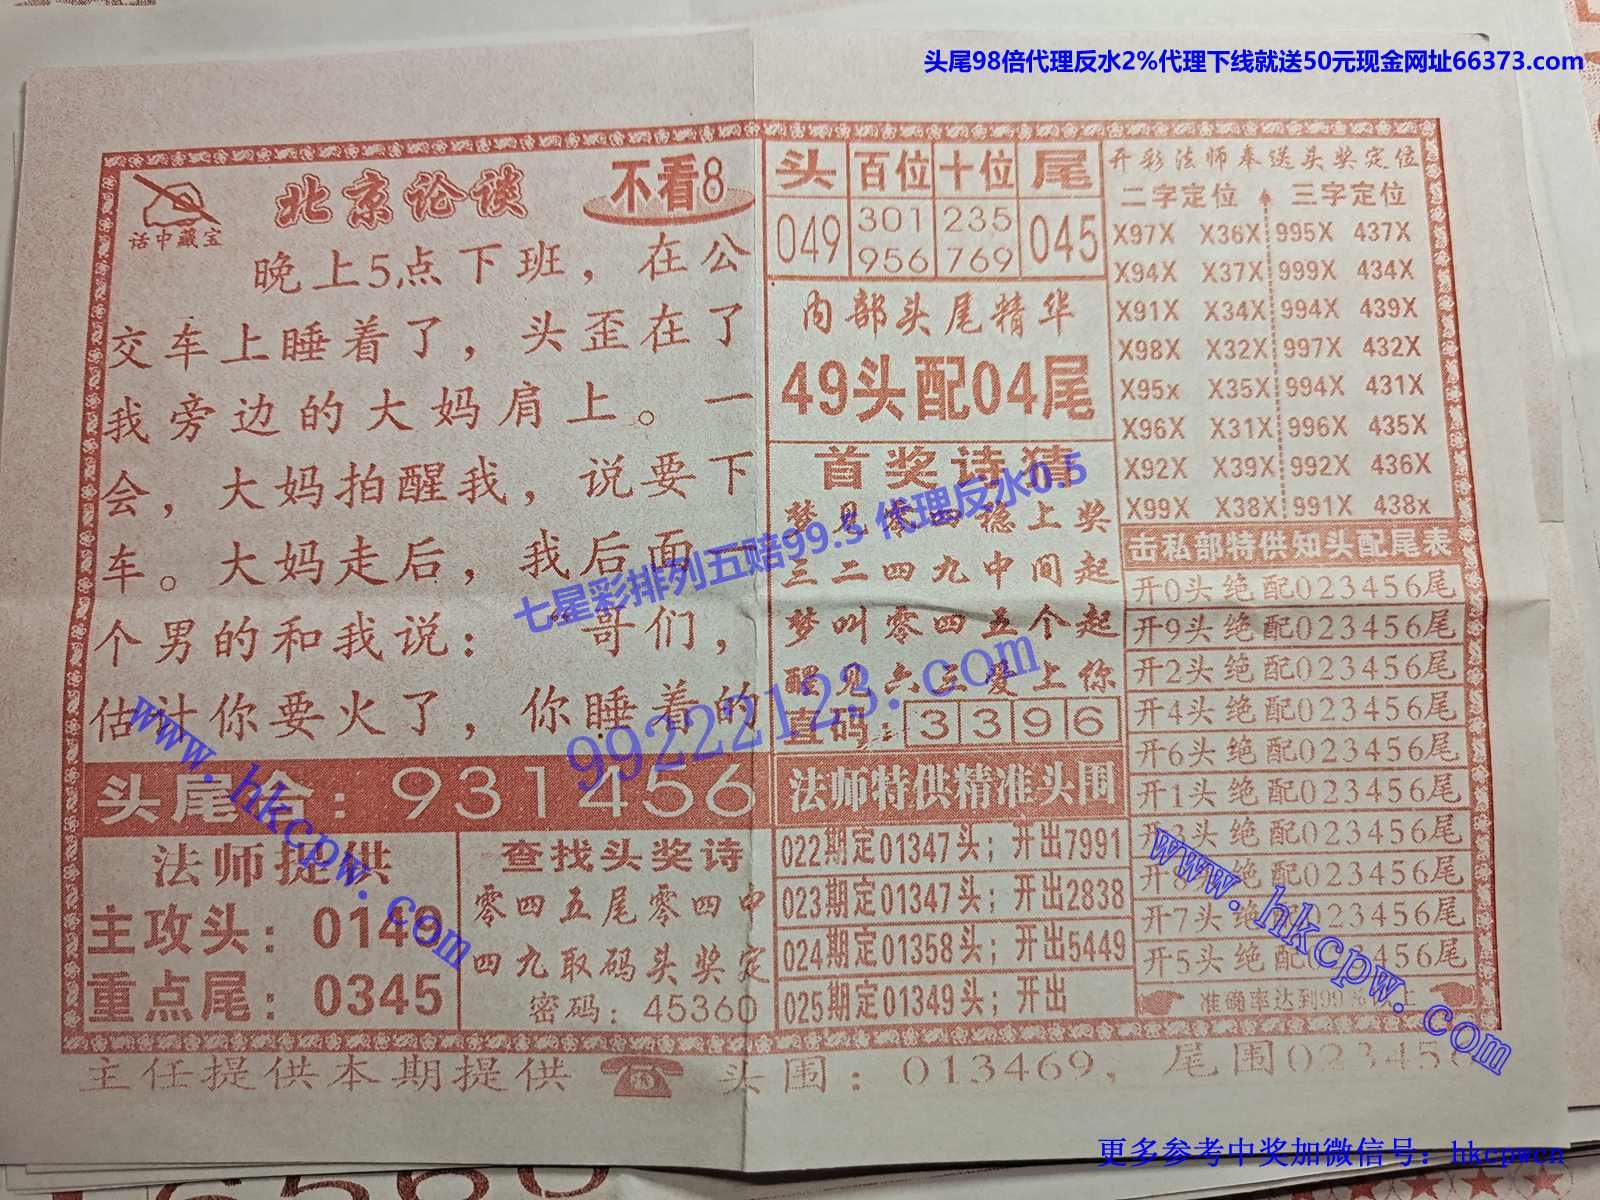 头尾98倍代理反水2%代理下线就送50元现金网址66373.com
话中藏宝
北京论谈
不看8
晚上5点下班，在公
交车上睡着了，头歪在了
我旁边的大妈肩上。一
会，大妈拍醒我，说要下
车。大妈走后，我后面一
个男的和我说：“哥们，
估计你要火了，你睡着的
头尾合：931456
法师提供
主攻头：0149
重点尾：0345
查找头奖诗
零四五尾零四中
四九取码头奖定
密码：45360
头 百位 十位 尾
049 301 235 045
956 769
内部头尾精华
49头配04尾
首奖诗猜
梦见零四稳上奖
三二四九中间起
梦叫零四五个起
醒见六三爱上你
直码：3396
法师特供精准头围
022期定01347头；开出7991
023期定01347头；开出2838
024期定01358头；开出5449
025期定01349头；开出
开彩法师奉送头奖定位
二字定位 三字定位
X97X X36X 995X 437X
X94X X37X 999X 434X
X91X X34X 994X 439X
X98X X32X 997X 432X
X95x X35X 994X 431X
X96X X31X 996X 435X
X92X X39X 992X 436X
X99X X38X 991X 438x
击私部特供知头配尾表
开0头绝配023456尾
开9头绝配023456尾
开2头绝配023456尾
开4头绝配023456尾
开6头绝配023456尾
开1头绝配023456尾
开3头绝配023456尾
开8头绝配023456尾
开7头绝配023456尾
开5头绝配023456尾
准确率达到99%以上
主任提供本期提供 头围：013469，尾围023456
七星彩排列五赔99.5 代理反水0.5
99222123.com
www.hkcpw.com
www.hkcpw.com
更多参考中奖加微信号：hkcpwcn